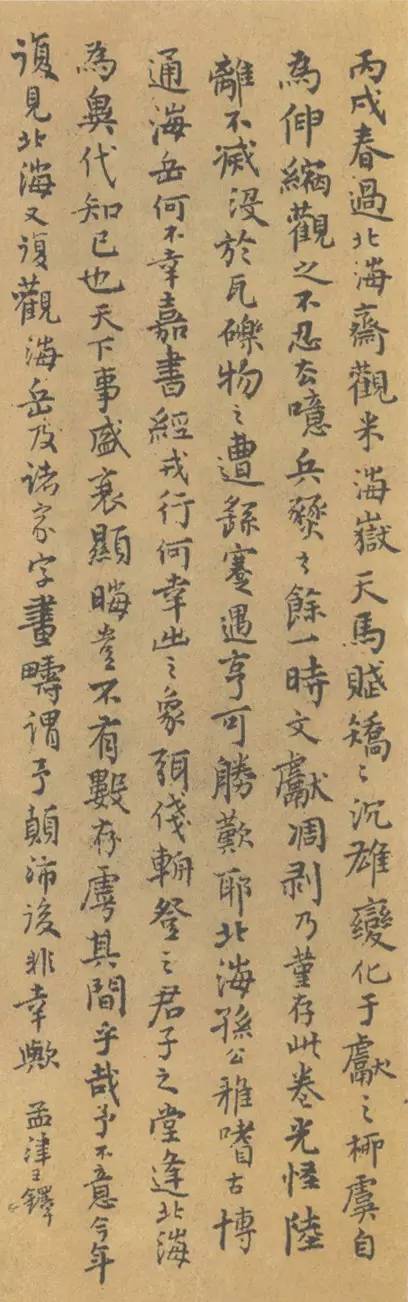 丙戌春過北海齋觀米海嶽天馬賦矯〻沉雄變化于獻之柳虞自
為伸縮觀之不忍去噫兵燹之餘一時文獻凋剥乃堇存此卷光怪陸
離不滅没於瓦礫物之遭蹇遇亨可勝歎耶北海孫公雅嗜古博
通海岳何不幸嘉書經戎行何幸出之象弭俴輈登之君子之堂逢北海
為異代知己也天下事盛衰顯晦豈不有數存虖其間乎哉予不意今年
復見北海又復觀海岳及諸家字畫疇謂予顛沛後非幸歟 孟津王鐸